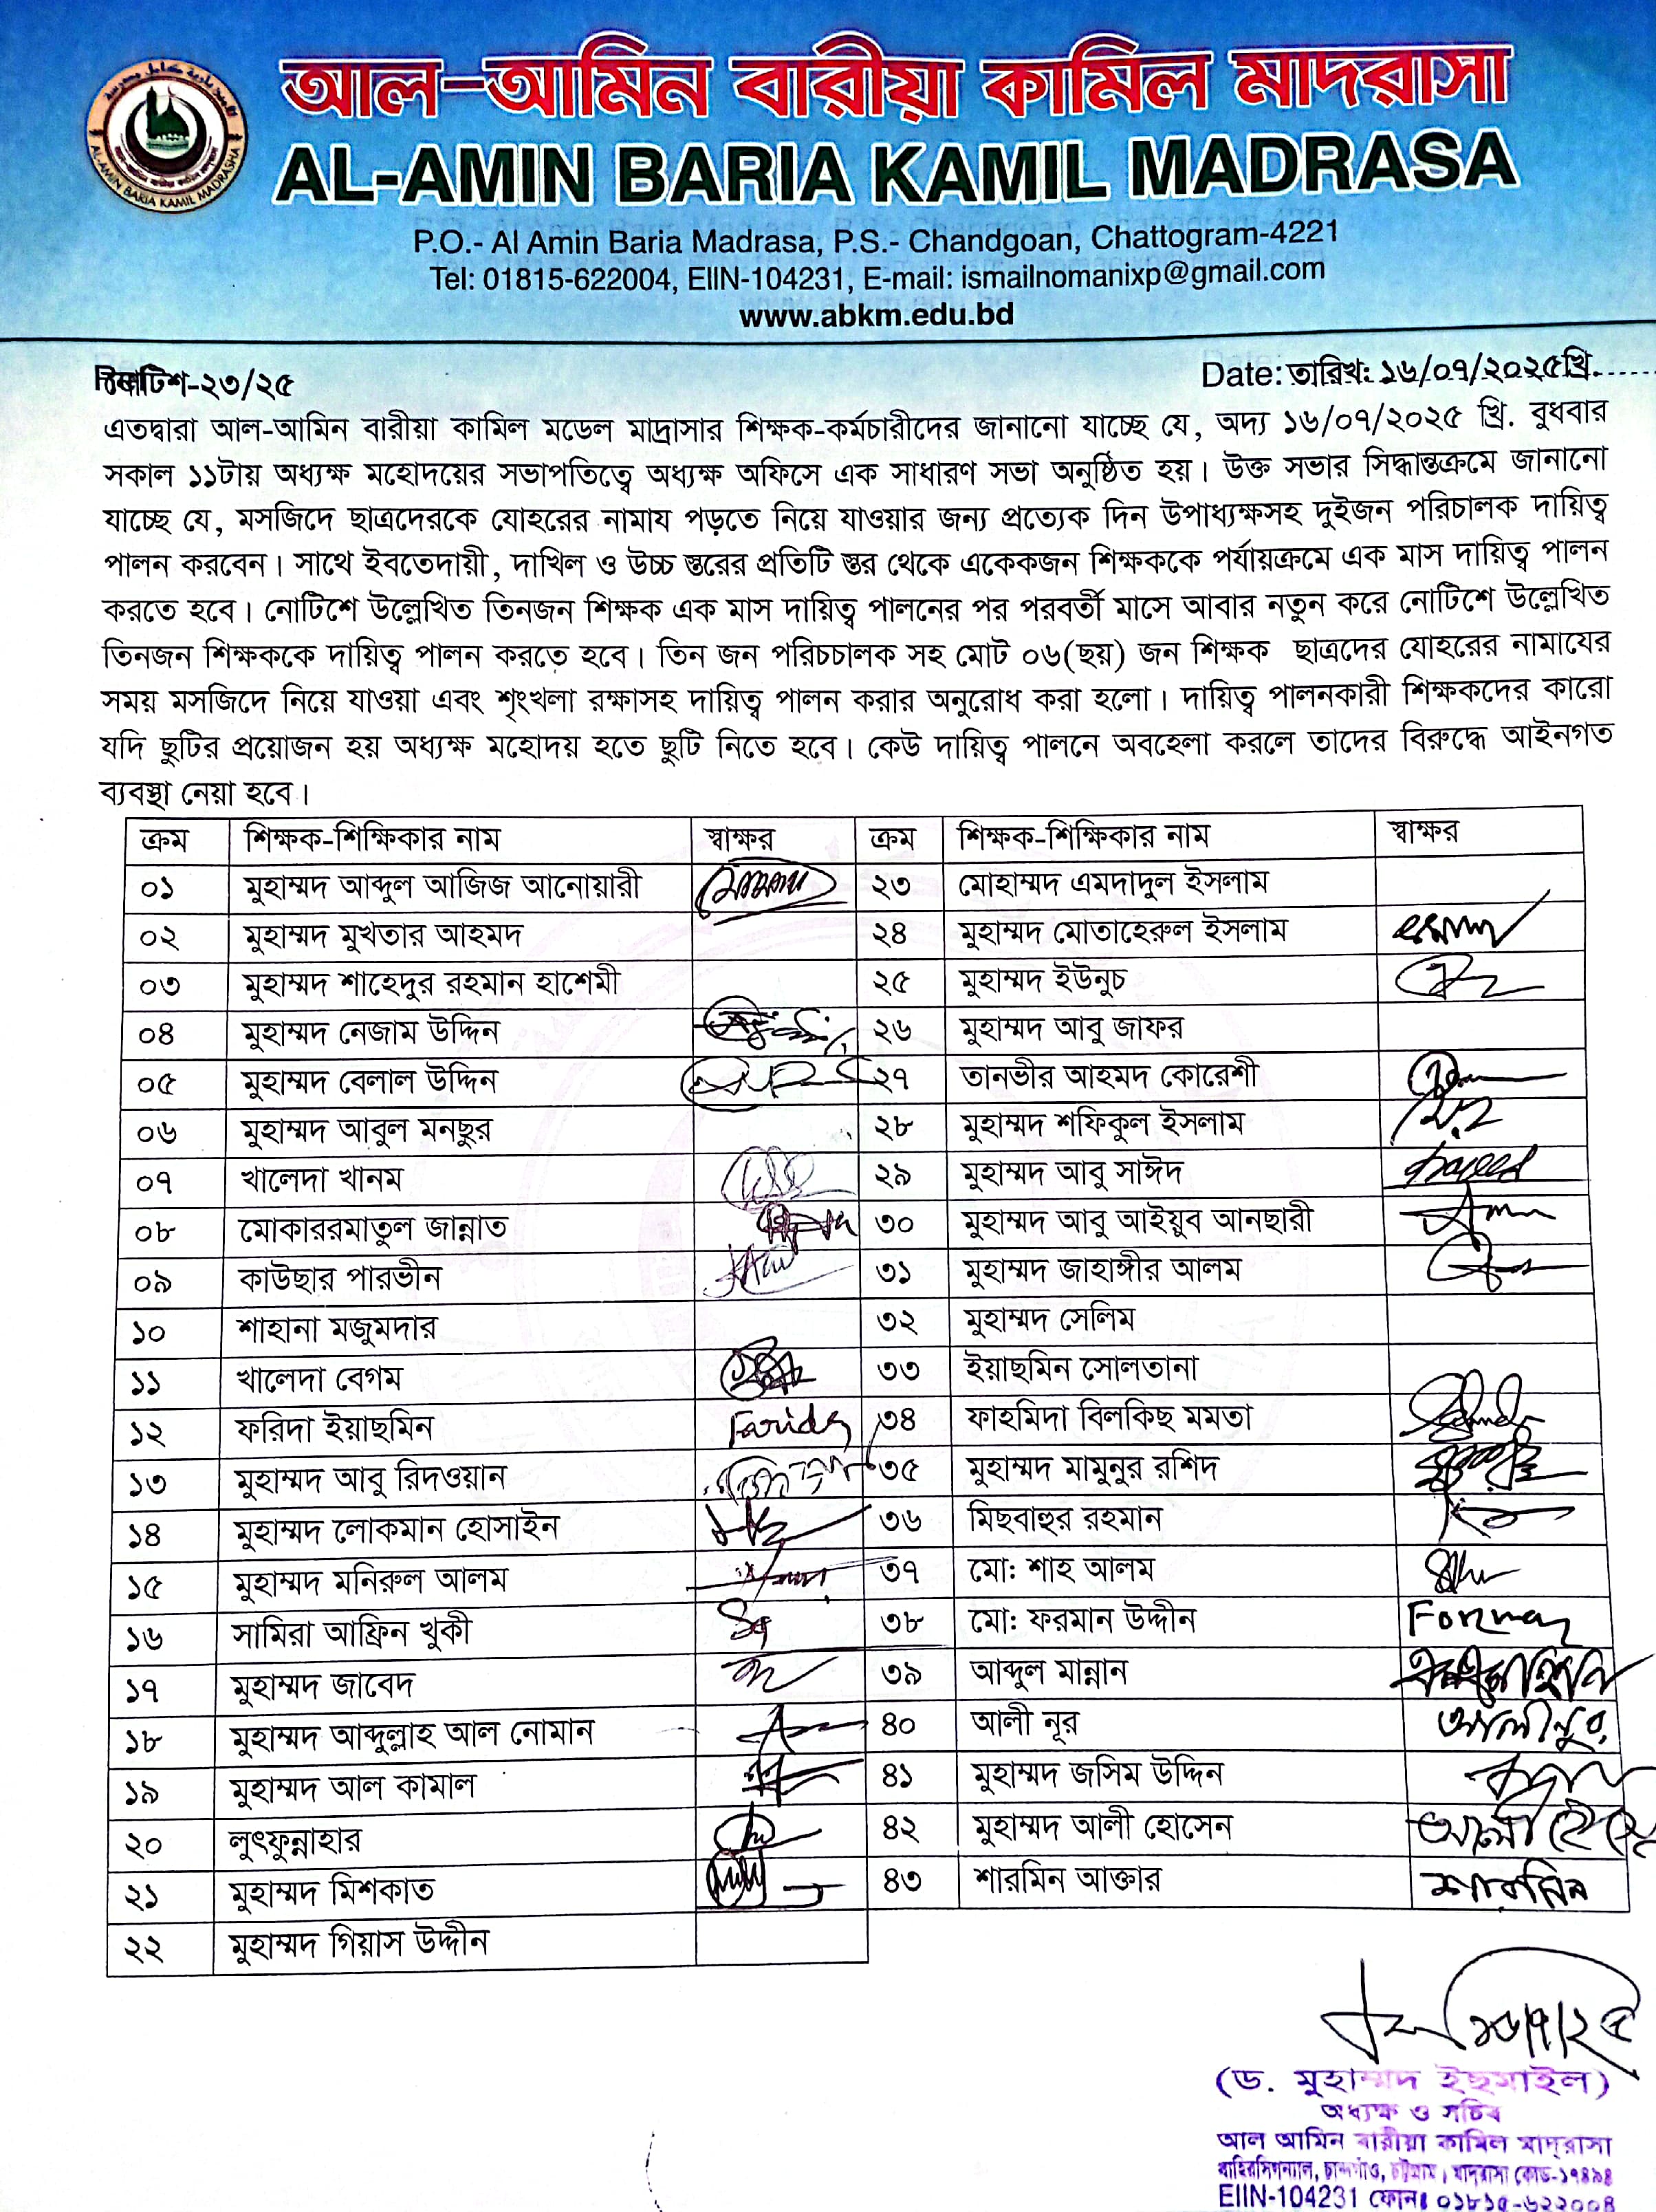 আল-আমিন বারীয়া কামিল মাদরাসা
AL-AMIN BARIA KAMIL MADRASA
AL-AMIN BARIA KAMIL MADRASHA
P.O.- Al Amin Baria Madrasa, P.S.- Chandgoan, Chattogram-4221
Tel: 01815-622004, EIIN-104231, E-mail: ismailnomanixp@gmail.com
www.abkm.edu.bd
নোটিশ-২৩/২৫
Date: তারিখ: ১৬/০৭/২০২৫খ্রি.
এতদ্বারা আল-আমিন বারীয়া কামিল মডেল মাদ্রাসার শিক্ষক-কর্মচারীদের জানানো যাচ্ছে যে, অদ্য ১৬/০৭/২০২৫ খ্রি. বুধবার
সকাল ১১টায় অধ্যক্ষ মহোদয়ের সভাপতিত্বে অধ্যক্ষ অফিসে এক সাধারণ সভা অনুষ্ঠিত হয়। উক্ত সভার সিদ্ধান্তক্রমে জানানো
যাচ্ছে যে, মসজিদে ছাত্রদেরকে যোহরের নামায পড়তে নিয়ে যাওয়ার জন্য প্রত্যেক দিন উপাধ্যক্ষসহ দুইজন পরিচালক দায়িত্ব
পালন করবেন। সাথে ইবতেদায়ী, দাখিল ও উচ্চ স্তরের প্রতিটি স্তর থেকে একেকজন শিক্ষককে পর্যায়ক্রমে এক মাস দায়িত্ব পালন
করতে হবে। নোটিশে উল্লেখিত তিনজন শিক্ষক এক মাস দায়িত্ব পালনের পর পরবর্তী মাসে আবার নতুন করে নোটিশে উল্লেখিত
তিনজন শিক্ষককে দায়িত্ব পালন করতে হবে। তিন জন পরিচচালক সহ মোট ০৬(ছয়) জন শিক্ষক ছাত্রদের যোহরের নামাযের
সময় মসজিদে নিয়ে যাওয়া এবং শৃংখলা রক্ষাসহ দায়িত্ব পালন করার অনুরোধ করা হলো। দায়িত্ব পালনকারী শিক্ষকদের কারো
যদি ছুটির প্রয়োজন হয় অধ্যক্ষ মহোদয় হতে ছুটি নিতে হবে। কেউ দায়িত্ব পালনে অবহেলা করলে তাদের বিরুদ্ধে আইনগত
ব্যবস্থা নেয়া হবে।
ক্রম শিক্ষক-শিক্ষিকার নাম স্বাক্ষর ক্রম শিক্ষক-শিক্ষিকার নাম স্বাক্ষর
০১ মুহাম্মদ আব্দুল আজিজ আনোয়ারী ২৩ মোহাম্মদ এমদাদুল ইসলাম
০২ মুহাম্মদ মুখতার আহমদ ২৪ মুহাম্মদ মোতাহেরুল ইসলাম
০৩ মুহাম্মদ শাহেদুর রহমান হাশেমী ২৫ মুহাম্মদ ইউনুচ
০৪ মুহাম্মদ নেজাম উদ্দিন ২৬ মুহাম্মদ আবু জাফর
০৫ মুহাম্মদ বেলাল উদ্দিন ২৭ তানভীর আহমদ কোরেশী
০৬ মুহাম্মদ আবুল মনছুর ২৮ মুহাম্মদ শফিকুল ইসলাম
০৭ খালেদা খানম ২৯ মুহাম্মদ আবু সাঈদ
০৮ মোকাররমাতুল জান্নাত ৩০ মুহাম্মদ আবু আইয়ুব আনছারী
০৯ কাউছার পারভীন ৩১ মুহাম্মদ জাহাঙ্গীর আলম
১০ শাহানা মজুমদার ৩২ মুহাম্মদ সেলিম
১১ খালেদা বেগম ৩৩ ইয়াছমিন সোলতানা
১২ ফরিদা ইয়াছমিন Farida ৩৪ ফাহমিদা বিলকিছ মমতা
১৩ মুহাম্মদ আবু রিদওয়ান ৩৫ মুহাম্মদ মামুনুর রশিদ
১৪ মুহাম্মদ লোকমান হোসাইন ৩৬ মিছবাহুর রহমান
১৫ মুহাম্মদ মনিরুল আলম ৩৭ মো: শাহ আলম
১৬ সামিরা আফ্রিন খুকী ৩৮ মো: ফরমান উদ্দীন Forman
১৭ মুহাম্মদ জাবেদ ৩৯ আব্দুল মান্নান
১৮ মুহাম্মদ আব্দুল্লাহ আল নোমান ৪০ আলী নূর আলীনুর
১৯ মুহাম্মদ আল কামাল ৪১ মুহাম্মদ জসিম উদ্দিন
২০ লুৎফুন্নাহার ৪২ মুহাম্মদ আলী হোসেন
২১ মুহাম্মদ মিশকাত ৪৩ শারমিন আক্তার শারমিন
২২ মুহাম্মদ গিয়াস উদ্দীন
১৬/৭/২৫
(ড. মুহাম্মদ ইছমাইল)
অধ্যক্ষ ও সচিব
আল আমিন বারীয়া কামিল মাদ্‌রাসা
বাহিরসিগন্যাল, চান্দগাঁও, চট্টগ্রাম। মাদ্‌রাসা কোড-১৭৪৯৪
EIIN-104231 ফোন: ০১৮১৫-৬২২০০৪